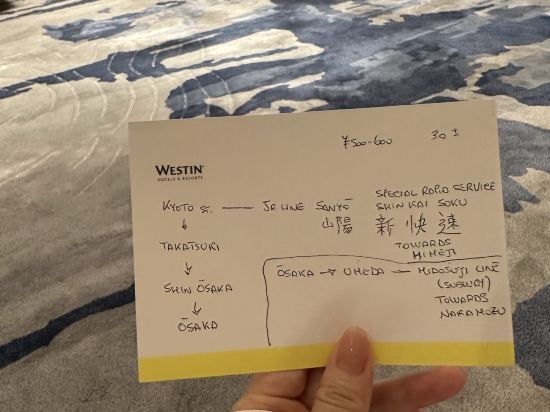 ¥500-600 30±
WESTIN
HOTELS & RESORTS
KYOTO ST. — JR LINE SANYŌ SPECIAL RAPID SERVICE
SHIN KAI SOKU
山陽 新快速
TOWARDS
HIMEJI
↓
TAKATSUKI
↓
SHIN ŌSAKA
↓
ŌSAKA
ŌSAKA → UMEDA — MIDOSUJI LINE
(SUBWAY)
TOWARDS
NAKAMOZU